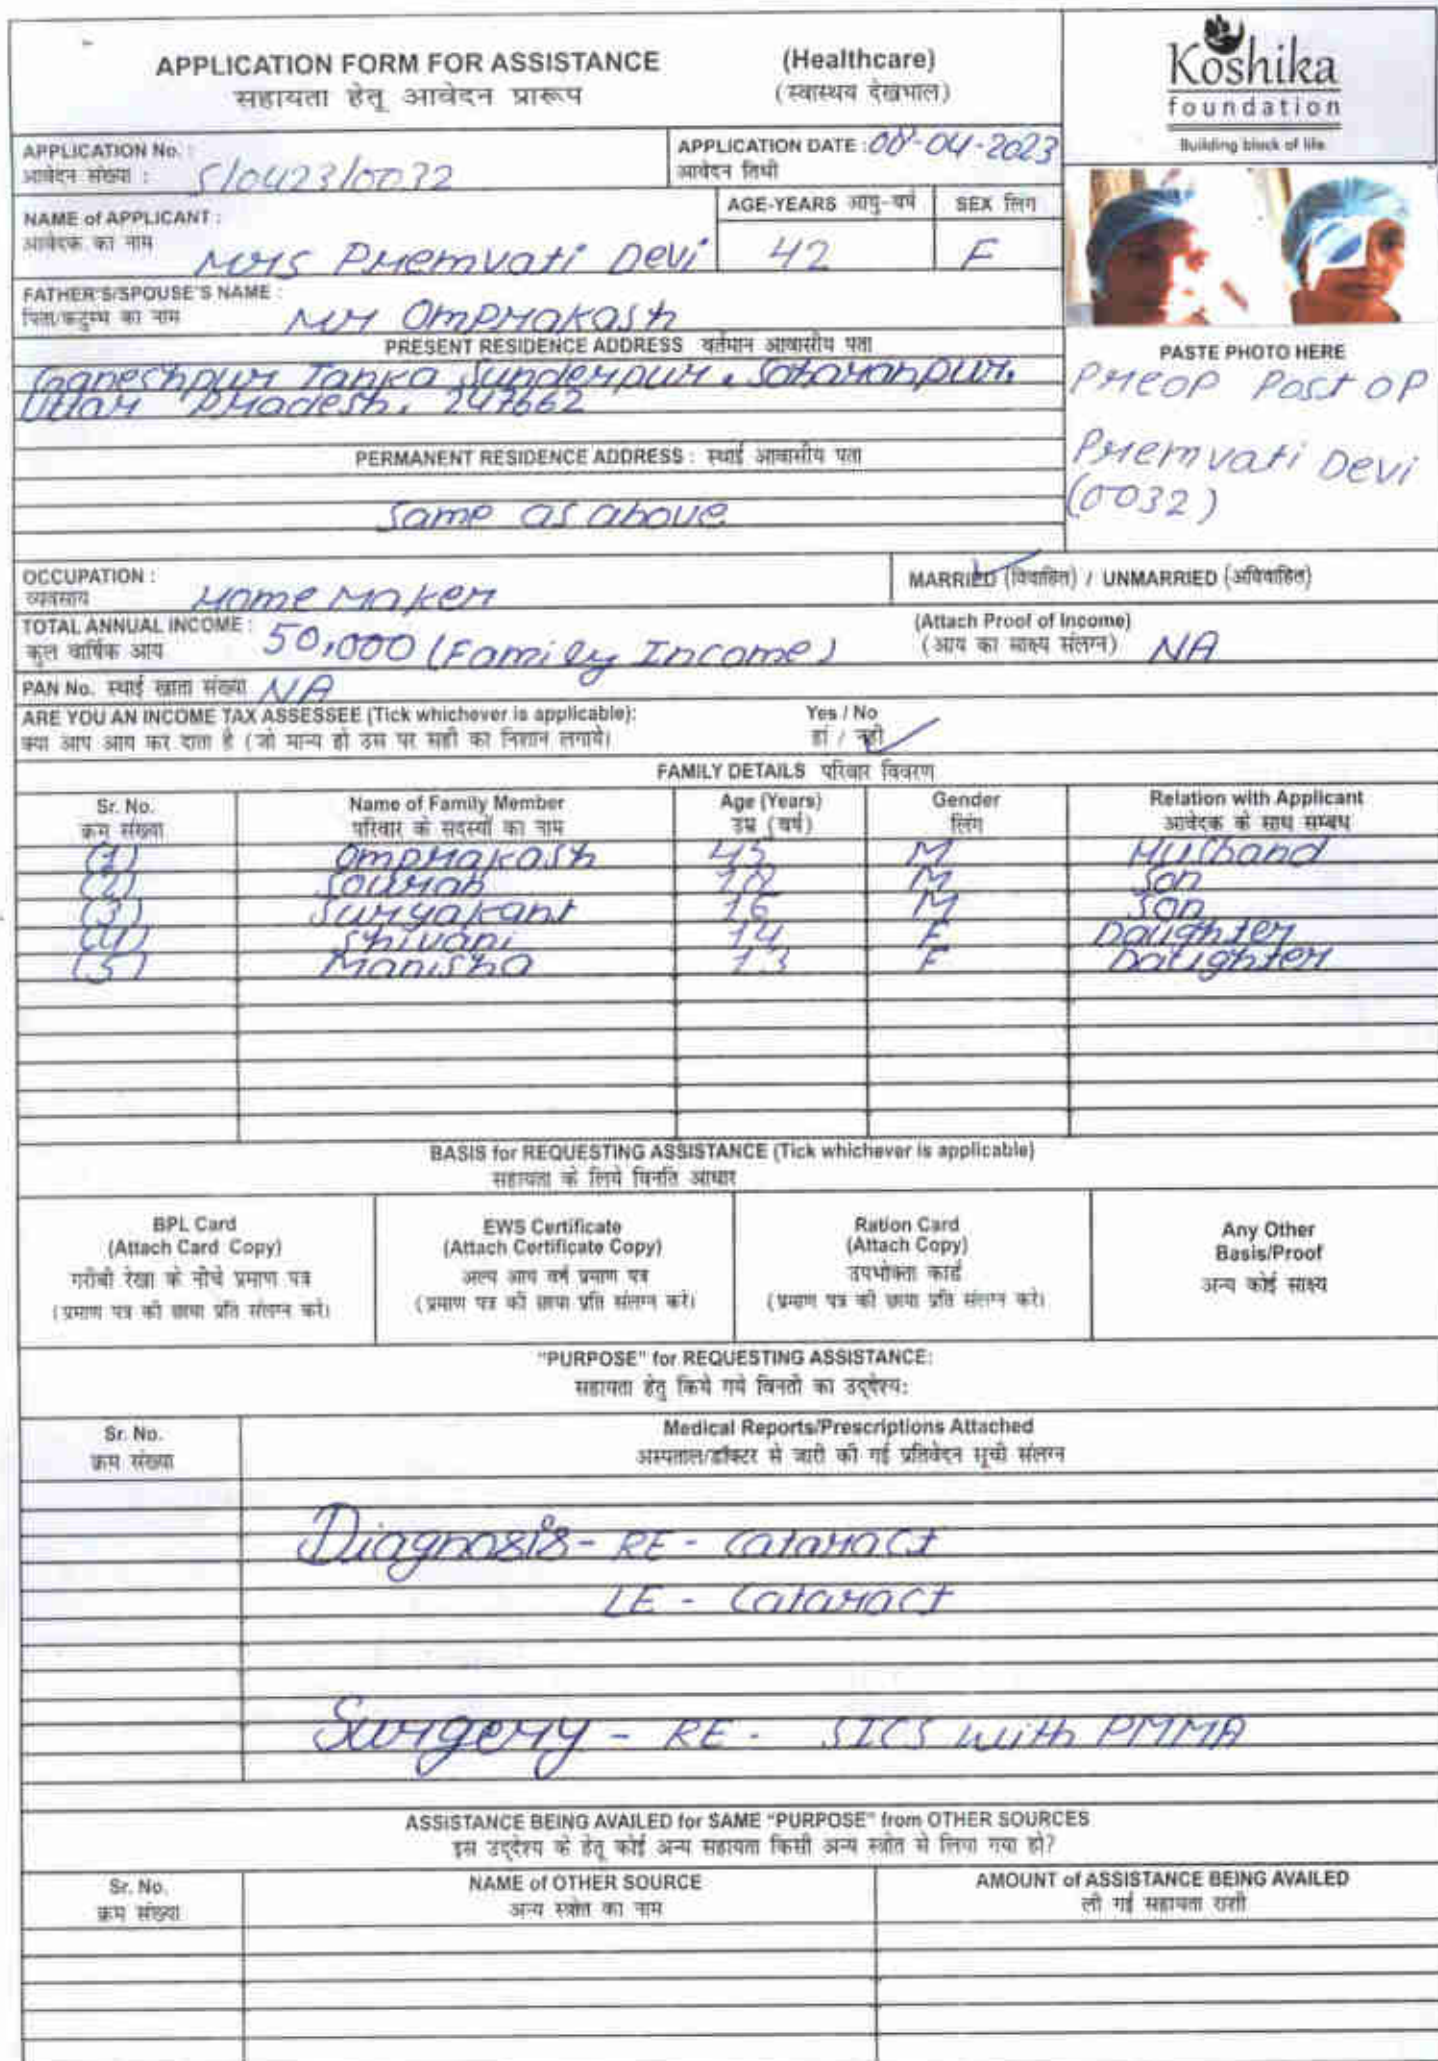 APPLICATION FORM FOR ASSISTANCE (Healthcare)
सहायता हेतू आवेदन प्रारूप (स्वास्थय देखभाल)
Koshika
foundation
Building block of life
APPLICATION No. : S/0423/0032
आवेदन संख्या :
APPLICATION DATE : 08-04-2023
आवेदन तिथी
NAME of APPLICANT : Mrs Premvati Devi
आवेदक का नाम
AGE-YEARS आयु-वर्ष 42
SEX लिंग F
FATHER'S/SPOUSE'S NAME : Mr Omprakash
पिता/कटुम्ब का नाम
PRESENT RESIDENCE ADDRESS वर्तमान आवासीय पता
Ganeshpur Tanka Sunderpur, Saharanpur,
Uttar Pradesh, 247662
PERMANENT RESIDENCE ADDRESS : स्थाई आवासीय पता
Same as above
PASTE PHOTO HERE
Preop Post op
Premvati Devi
(0032)
OCCUPATION : Home Maker
व्यवसाय
MARRIED (विवाहित) / UNMARRIED (अविवाहित)
TOTAL ANNUAL INCOME : 50,000 (Family Income)
कुल वार्षिक आय
(Attach Proof of Income)
(आय का साक्ष्य संलग्न) NA
PAN No. स्थाई खाता संख्या NA
ARE YOU AN INCOME TAX ASSESSEE (Tick whichever is applicable): Yes / No
क्या आप आय कर दाता है (जो मान्य हो उस पर सही का निशान लगाये। हां / नही
FAMILY DETAILS परिवार विवरण
Sr. No. Name of Family Member Age (Years) Gender Relation with Applicant
क्रम संख्या परिवार के सदस्यों का नाम उम्र (वर्ष) लिंग आवेदक के साथ सम्बध
(1) Omprakash 45 M Husband
(2) Sourab 18 M Son
(3) Suryakant 16 M Son
(4) Shivani 14 F Daughter
(5) Manisha 13 F Daughter
BASIS for REQUESTING ASSISTANCE (Tick whichever is applicable)
सहायता के लिये विनति आधार
BPL Card
(Attach Card Copy)
गरीबी रेखा के नीचे प्रमाण पत्र
(प्रमाण पत्र की छाया प्रति संलग्न करे।
EWS Certificate
(Attach Certificate Copy)
अल्प आय वर्ग प्रमाण पत्र
(प्रमाण पत्र की छाया प्रति संलग्न करे।
Ration Card
(Attach Copy)
उपभोक्ता कार्ड
(प्रमाण पत्र की छाया प्रति संलग्न करे।
Any Other
Basis/Proof
अन्य कोई साक्ष्य
"PURPOSE" for REQUESTING ASSISTANCE:
सहायता हेतु किये गये विनती का उद्देश्य:
Sr. No. Medical Reports/Prescriptions Attached
क्रम संख्या अस्पताल/डॉक्टर से जारी की गई प्रतिवेदन सूची संलग्न
Diagnosis - RE - Cataract
LE - Cataract
Surgery - RE - SICS with PMMA
ASSISTANCE BEING AVAILED for SAME "PURPOSE" from OTHER SOURCES
इस उद्देश्य के हेतू कोई अन्य सहायता किसी अन्य स्त्रोत से लिया गया हो?
Sr. No. NAME of OTHER SOURCE AMOUNT of ASSISTANCE BEING AVAILED
क्रम संख्या अन्य स्त्रोत का नाम ली गई सहायता राशी